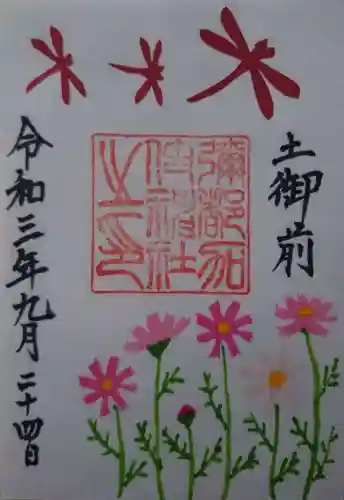 土御前
彌都加
伎神社
之印
令和三年九月二十四日